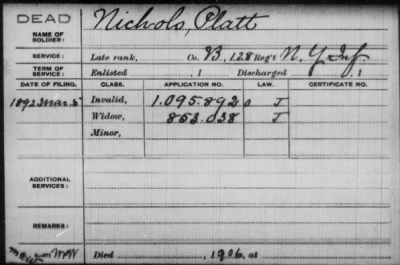 DEAD
Nichols, Platt
NAME OF SOLDIER:
SERVICE: Late rank, Co. B, 128 Reg't N.Y. Inf
TERM OF SERVICE: Enlisted , 1 Discharged , 1
DATE OF FILING. CLASS. APPLICATION NO. LAW. CERTIFICATE NO.
1892 Mar. 5 Invalid, 1.095.892 J
Widow, 853.038 J
Minor,
ADDITIONAL SERVICES:
REMARKS:
Died , 1906, at